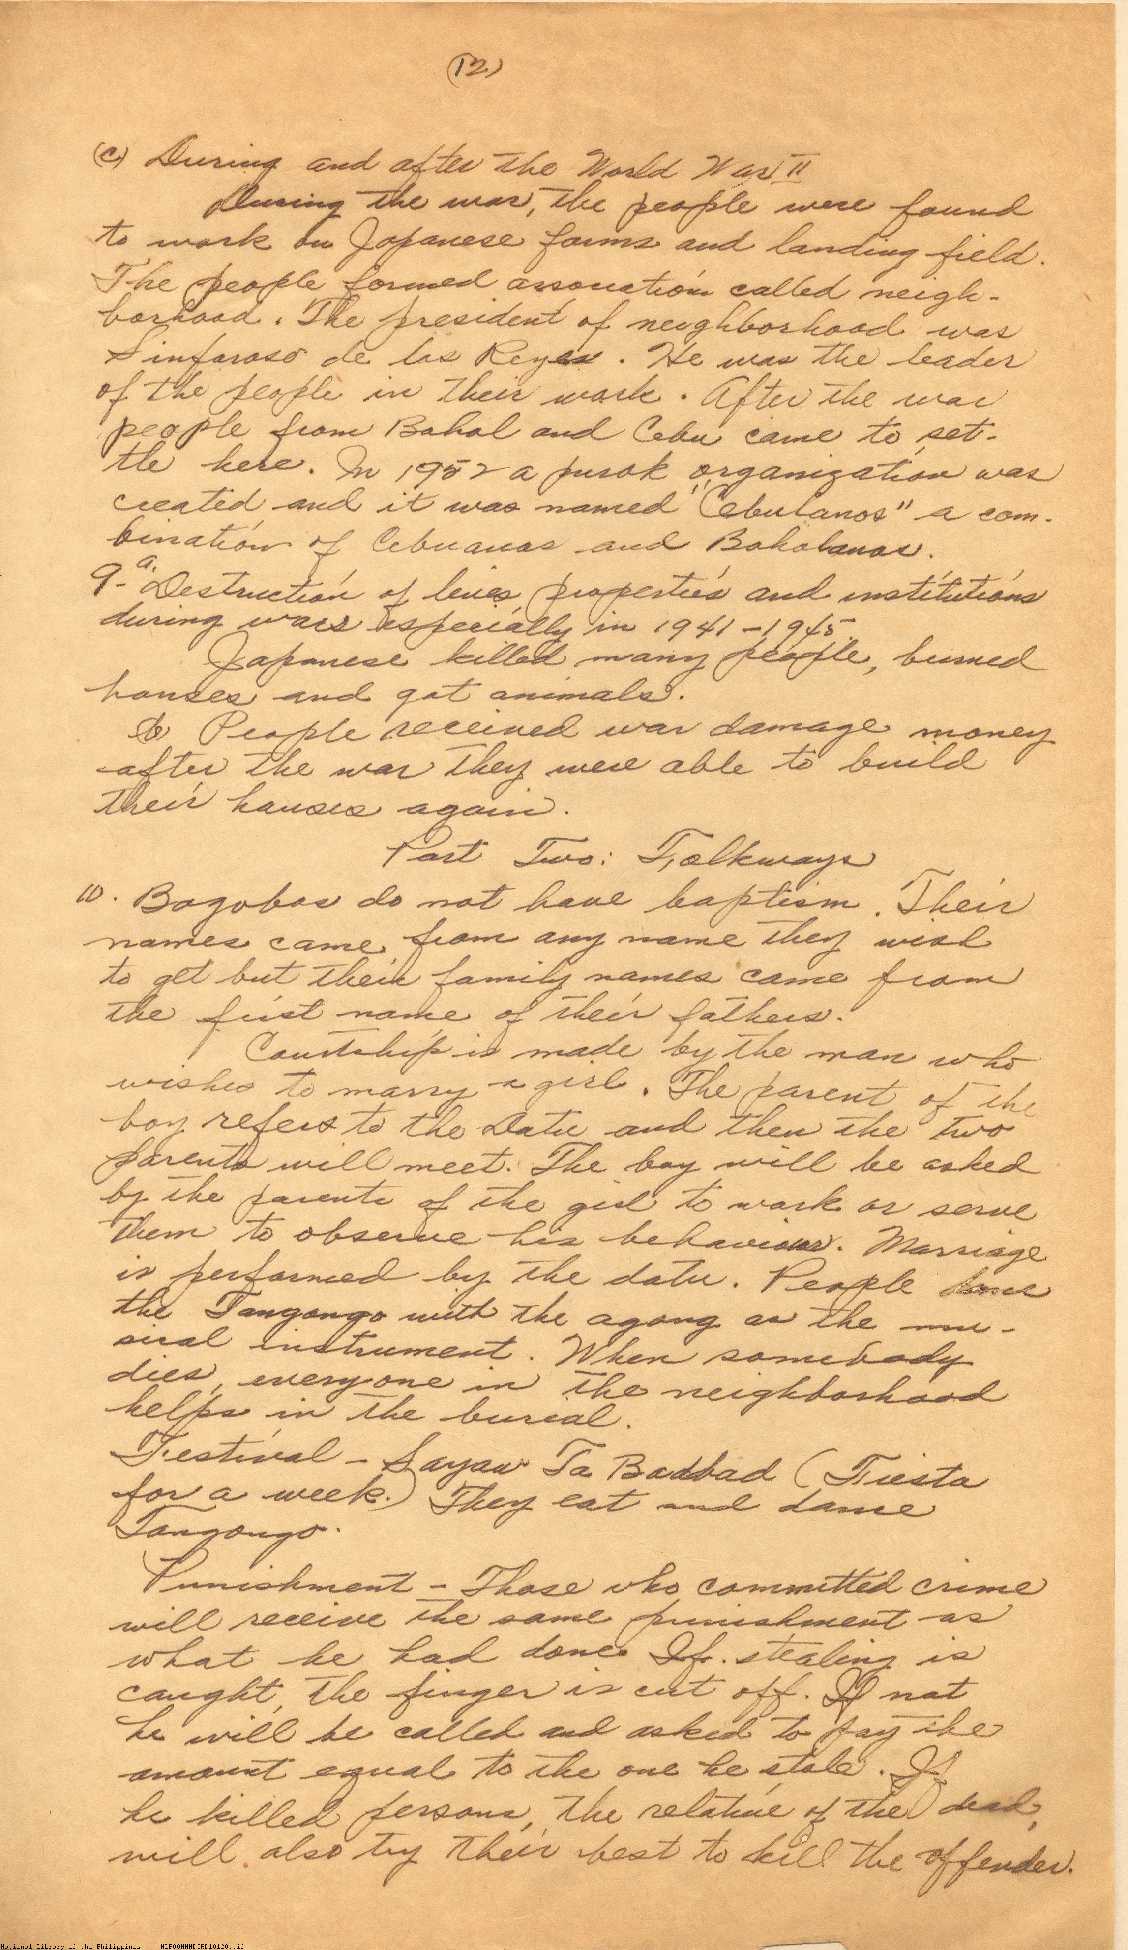 (12)
(c) During and after the World War II
During the war, the people were found
to work on Japanese farms and landing field.
The people formed association called neigh-
borhood. The president of neighborhood was
Sinforoso de los Reyes. He was the leader
of the people in their work. After the war
people from Bohol and Cebu came to set-
tle here. In 1952 a purok organization was
created and it was named "Cebulanos" a com-
bination of Cebuanos and Boholanos.
9-a. Destruction of lives properties and institutions
during wars especially in 1941-1945.
Japanese killed many people, burned
houses and got animals.
b People received war damage money
after the war they were able to build
their houses again.
Part Two: Folkways
10. Bagobos do not have baptism. Their
names came from any name they wish
to get but their family names came from
the first name of their fathers.
Courtship is made by the man who
wishes to marry a girl. The parent of the
boy refers to the Datu and then the two
parents will meet. The boy will be asked
by the parents of the girl to work or serve
them to observe his behaviour. Marriage
is performed by the datu. People
the Tangongo with the agong as the mu-
sical instrument. When somebody
dies, everyone in the neighborhood
helps in the burial.
Festival - Sayaw Ta Badbad (Fiesta
for a week.) They eat and dance
Tangongo.
Punishment - Those who committed crime
will receive the same punishment as
what he had done. If stealing is
caught, the finger is cut off. If not
he will be called and asked to pay the
amount equal to the one he stole. If
he killed persons, the relative of the dead,
will also try their best to kill the offender.
National Library of the Philippines